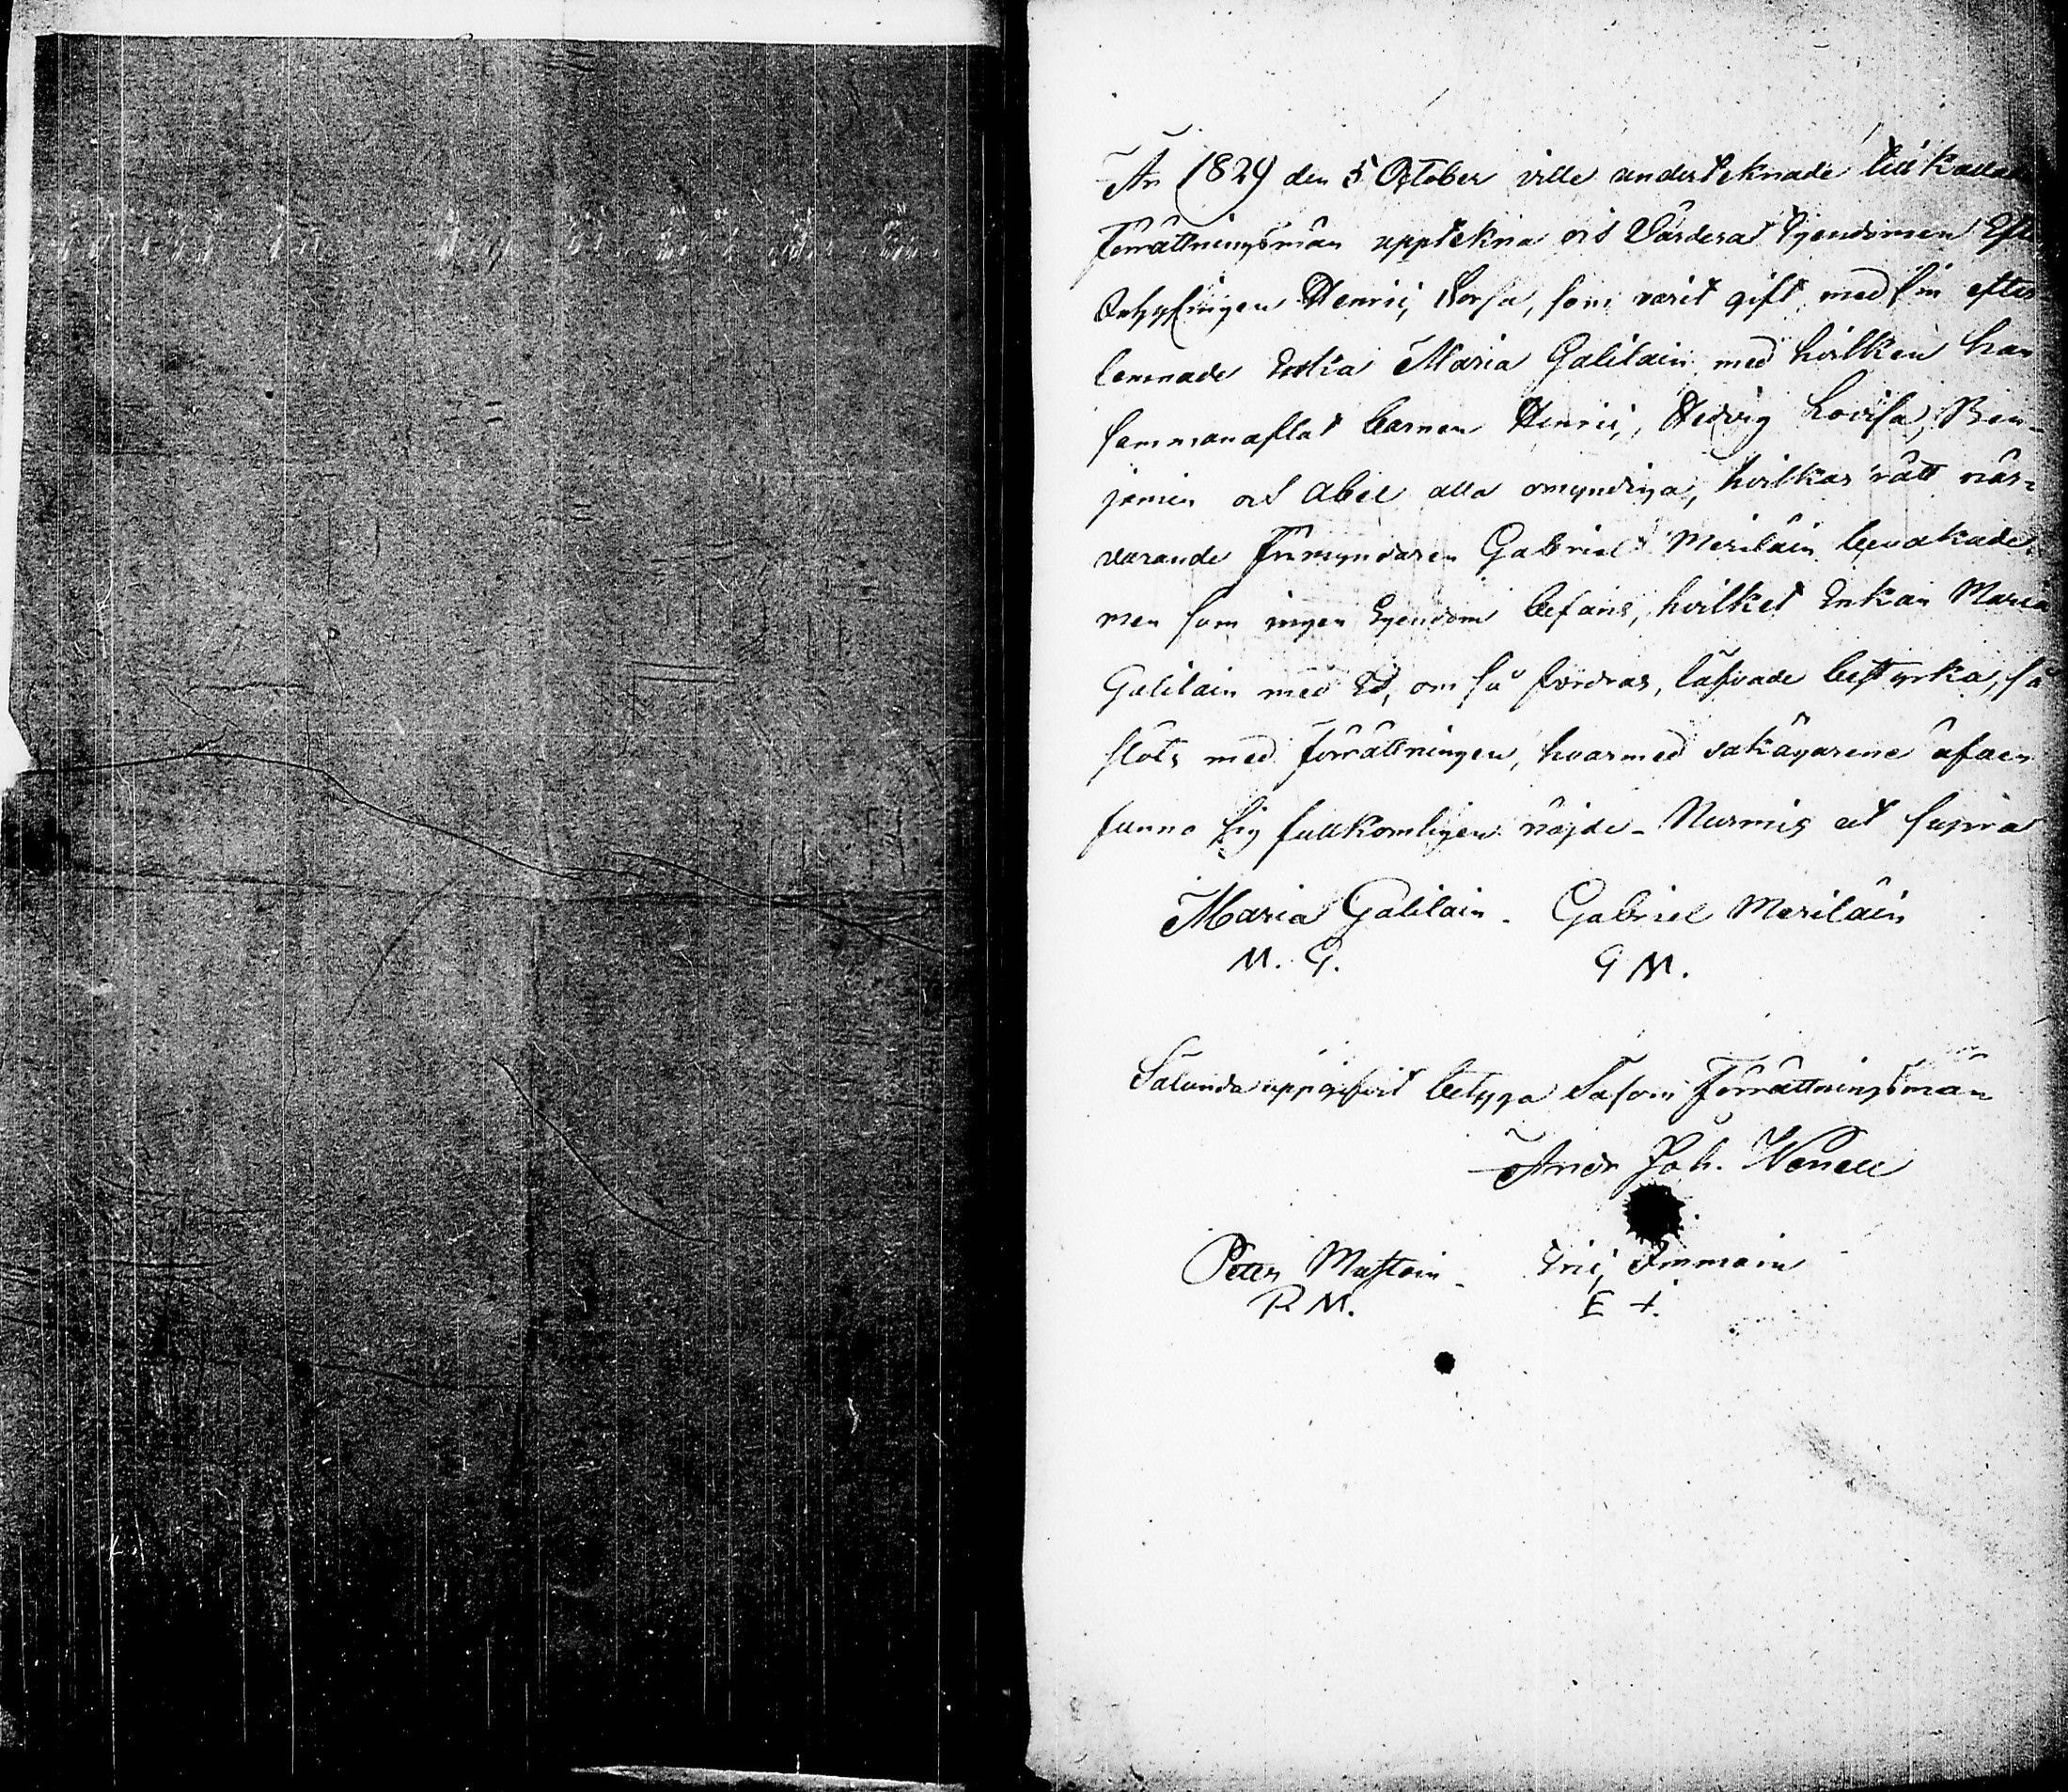 År 1829 den 5 October ville undertecknade tillkallade
Förrättningsmän uppteckna och Värdera Egendomen Efter
Inhysingen Henric Sorsa, som varit gift med sin efter
lemnade Enka Maria Galilain med hvilken han
sammanaflat barnen Henric, Hedvig Lovisa, Ben-
jamin och Abel alla omyndiga, hvilkas rätt när-
varande Förmyndaren Gabriel Meriläin bevakade,
men som ingen Egendom befans, hvilket Enkan Maria
Galilain med Ed, om så fordras, låfvade bestyrka, så
slöts med förrättningen, hvarmed sakägarene äfven
funno sig fullkomligen nöjde - Nurmis ut supra
Maria Galilain - Gabriel Meriläin
M. G. G M.
Sålunda uppgifvit betyga Såsom Förrättningsmän
And Joh. Wenell
Petter Mustoin - Eric Immoin
P. M. E I.